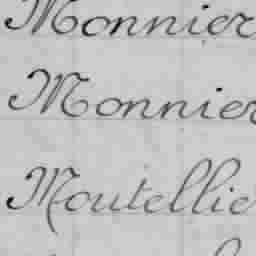 Monnier
Monnier
Moutellie